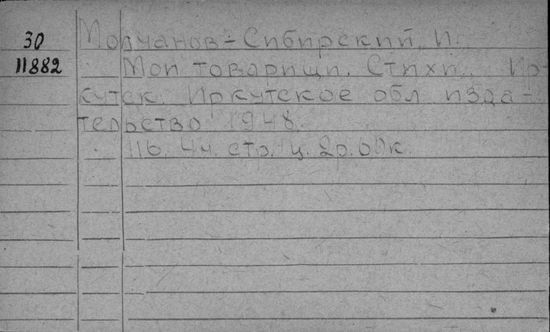 30 Молчанов-Сибирский, И.
11882 Мои товарищи. Стихи. Ир-
кутск. Иркутское обл изда-
тельство 1948.
116. 44. стр. ц. 2р.00к.